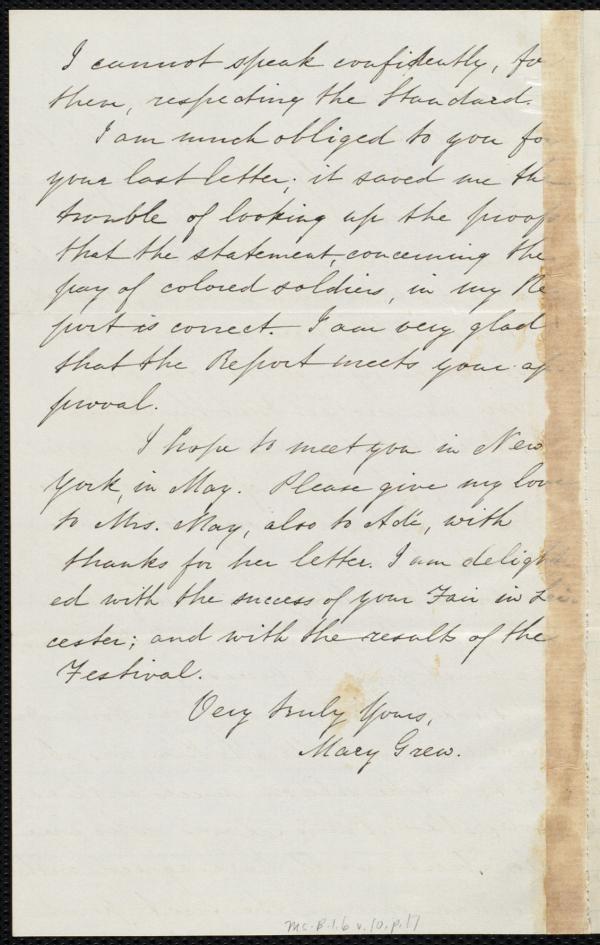 I cannot speak confidently, for
them, respecting the Standard.
I am much obliged to you for
your last letter; it saved me the
trouble of looking up the proof
that the statement, concerning the
pay of colored soldiers, in my Re
port is correct. I am very glad
that the Report meets your ap
proval.
I hope to meet you in New
York, in May. Please give my love
to Mrs. May, also to Ade, with
thanks for her letter. I am delight
ed with the success of your Fair in Lei
cester; and with the results of the
Festival.
Very truly Yours,
Mary Grew.
Ms. B.1.6 v.10, p.17